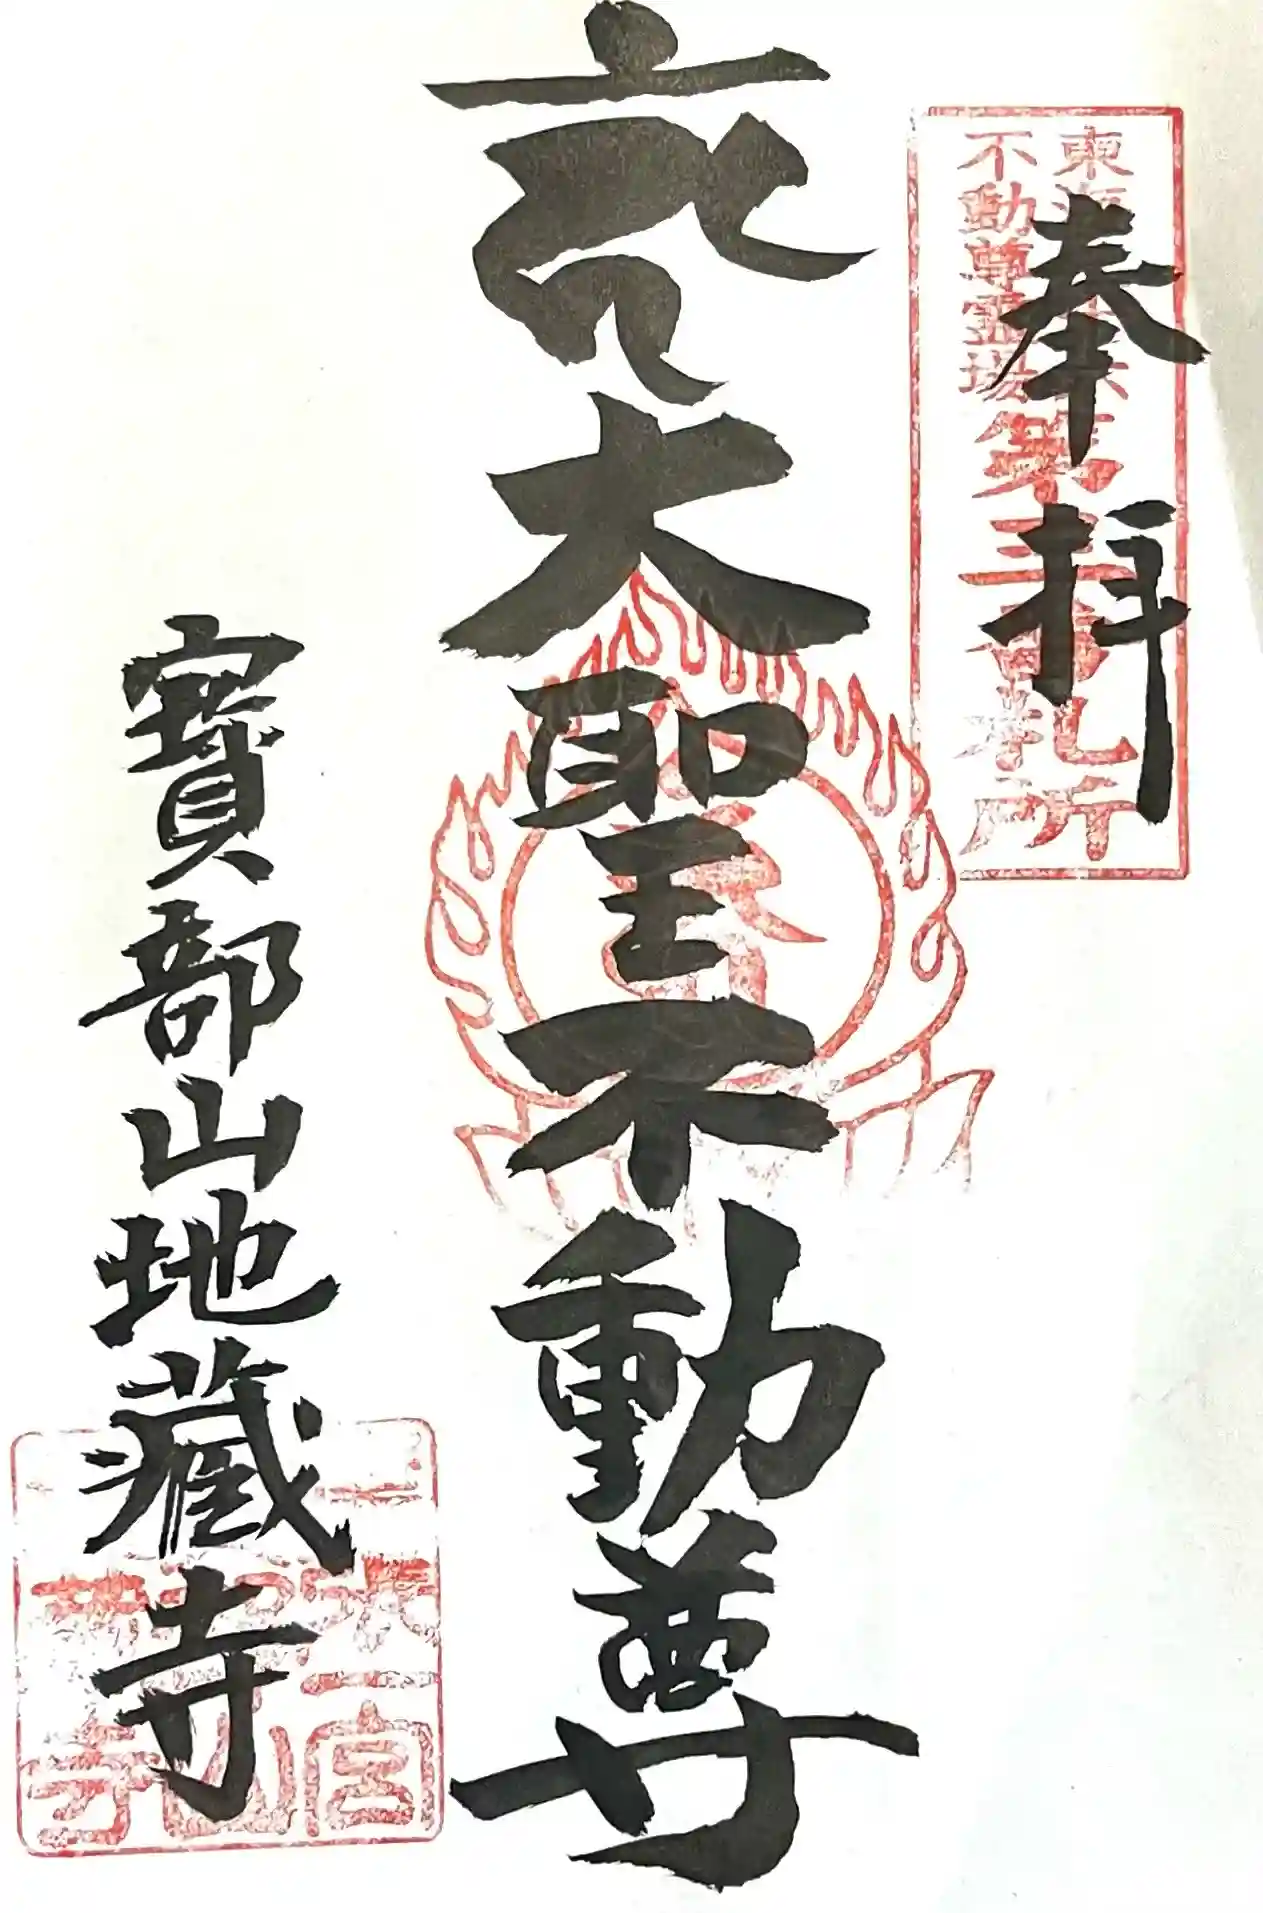 奉拝
東海三十六
不動尊霊場
第三番札所
大聖不動尊
寶部山地藏寺